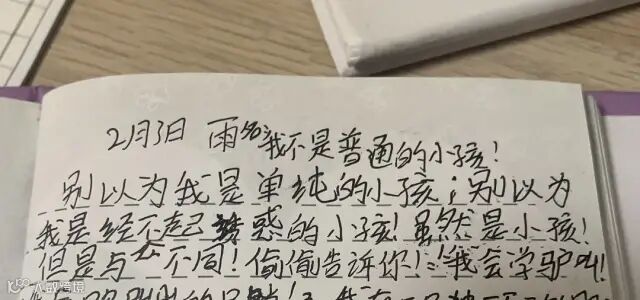 2月3日 雨 我不是普通的小孩!
别以为我是单纯的小孩;别以为
我是经不起诱惑的小孩!虽然是小孩!
但是与不同!偷偷告诉你!:我会学驴叫!